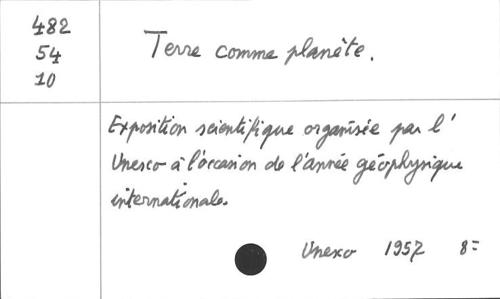 482
54
10
Terre comme planète.
Exposition scientifique organisée par l'
Unesco à l'occasion de l'année géophysique
internationale.
Unesco 1957 8=